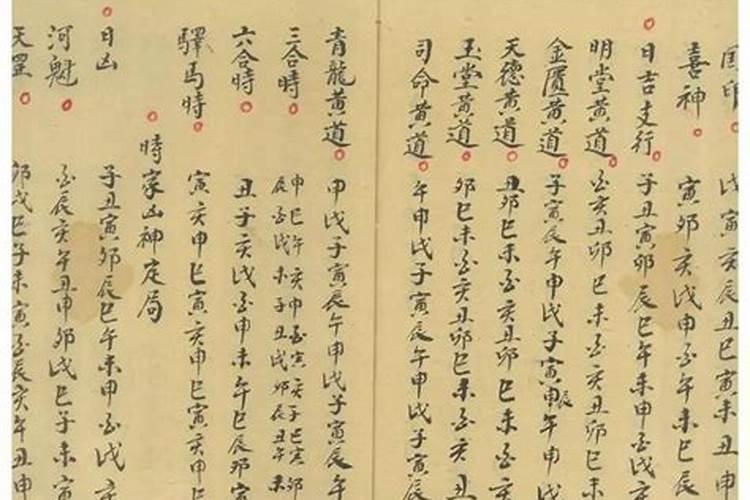 戊寅辰丑巳寅未丑
喜神 寅卯亥戌申酉午未巳辰
日吉支行 子丑寅卯辰巳午未申酉戌亥
明堂黃道 酉亥丑卯巳未酉亥丑卯巳
金匱黃道 子寅辰午申戌子寅申辰午申
天德黃道 丑卯巳未酉亥丑卯巳未酉
玉堂黃道 卯巳未酉亥丑卯巳未酉亥丑
司命黃道 午申戌子寅辰午申戌子寅辰
青龍黃道 申戌子寅辰午申戌子寅辰午
三合時 申巳午亥申酉寅亥子巳寅卯
辰酉戌未子丑戌卯辰丑午未
六合時 丑子亥戌酉申未午巳辰卯寅
驛馬時 寅亥申巳寅亥申巳寅亥申巳
時家凶神定局
日凶 子丑寅卯辰巳午未申酉戌亥
河魁 酉辰亥午丑申卯戌巳子未寅
天罡 卯戌巳子未寅酉辰亥午丑申